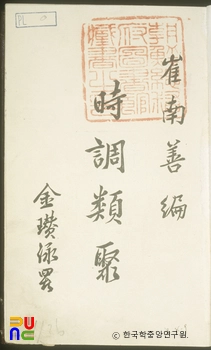 崔南善編
時調類聚
金瓚泳署
© 한국학중앙연구원